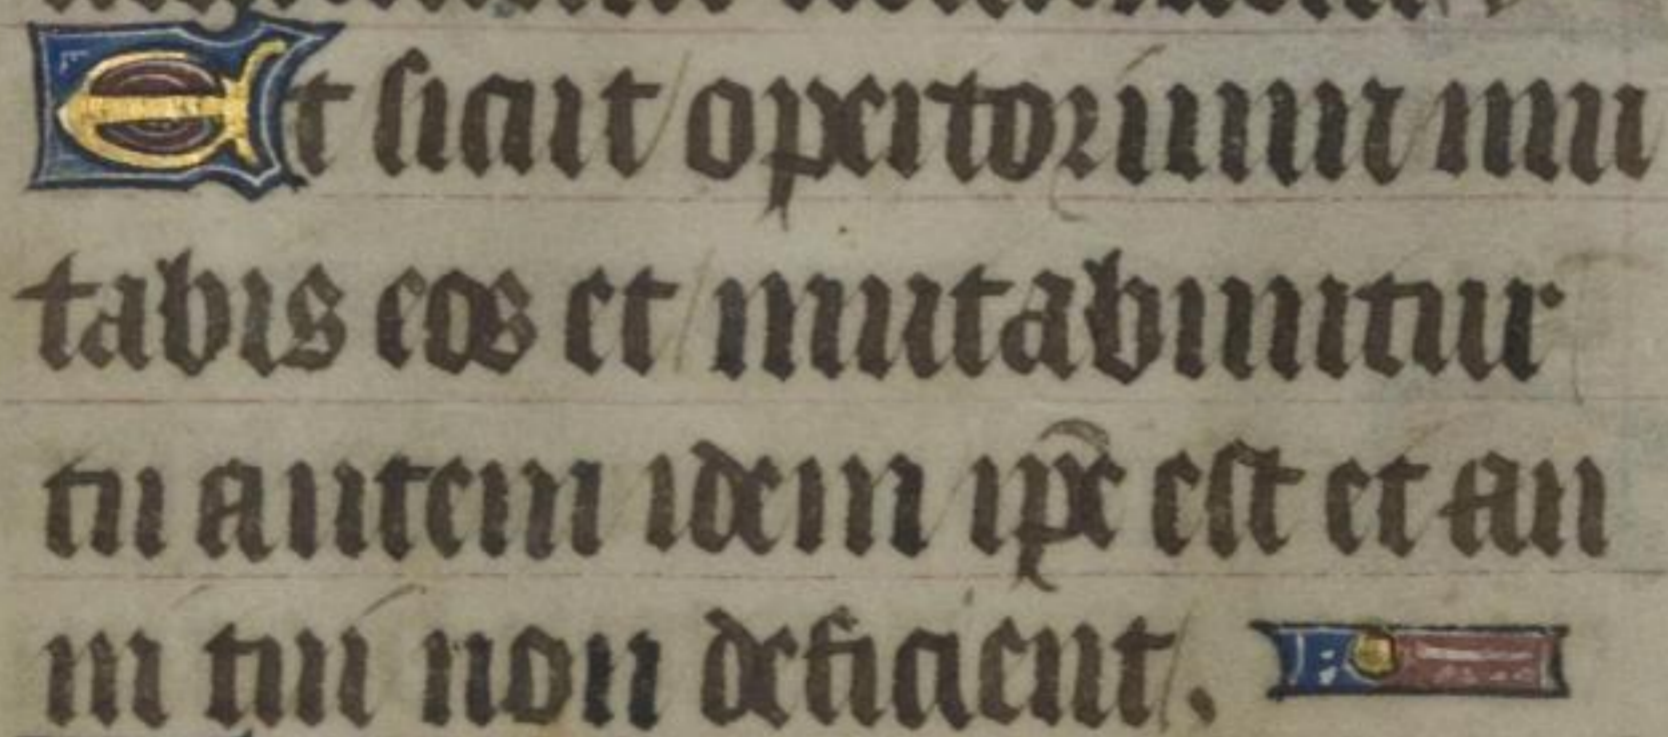 Et sicut opertorium mu
tabis eos et mutabuntur
tu autem idem ip̄e est et an
ni tui non deficient.